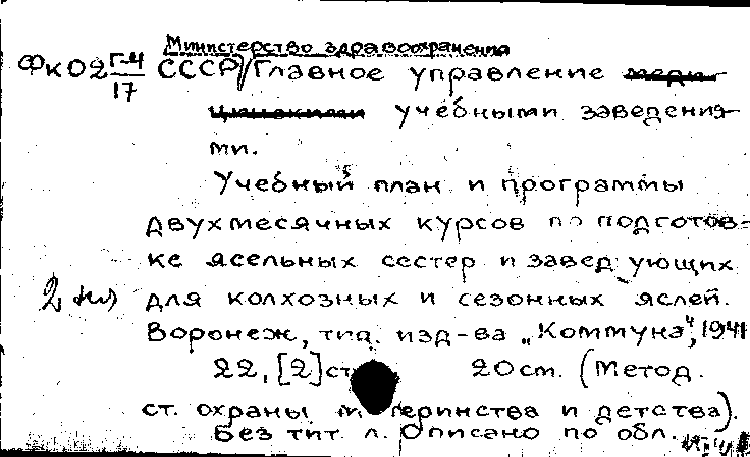 Министерство здравоохранения
ФкО2 Г-4/17 СССР/Главное управление меди-
цинскими учебными заведения-
ми.
Учебный план и программы
двухмесячных курсов по подготов-
ке ясельных сестер и завед ующих
2 кл для колхозных и сезонных яслей.
Воронеж, тип. изд-ва „Коммуна", 1941
22, [2] ст 20 см. (Метод.
ст. охраны материнства и детства).
Без тит. л. Описано по обл.